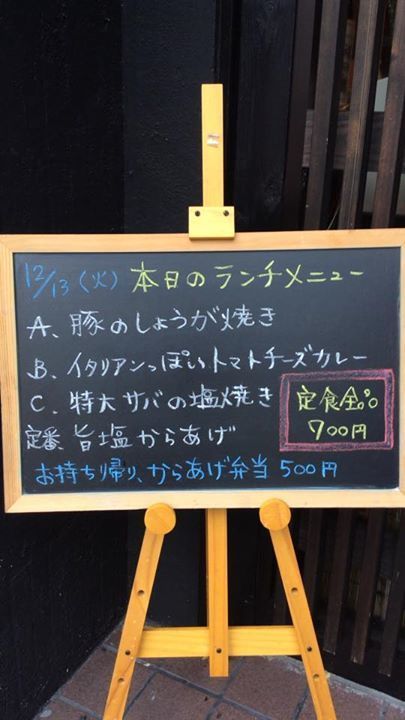 12/13(火) 本日のランチメニュー
A、豚のしょうが焼き
B、イタリアンっぽいトマトチーズカレー
C、特大サバの塩焼き
定番、旨塩からあげ
お持ち帰り、からあげ弁当 500円
定食全品
700円